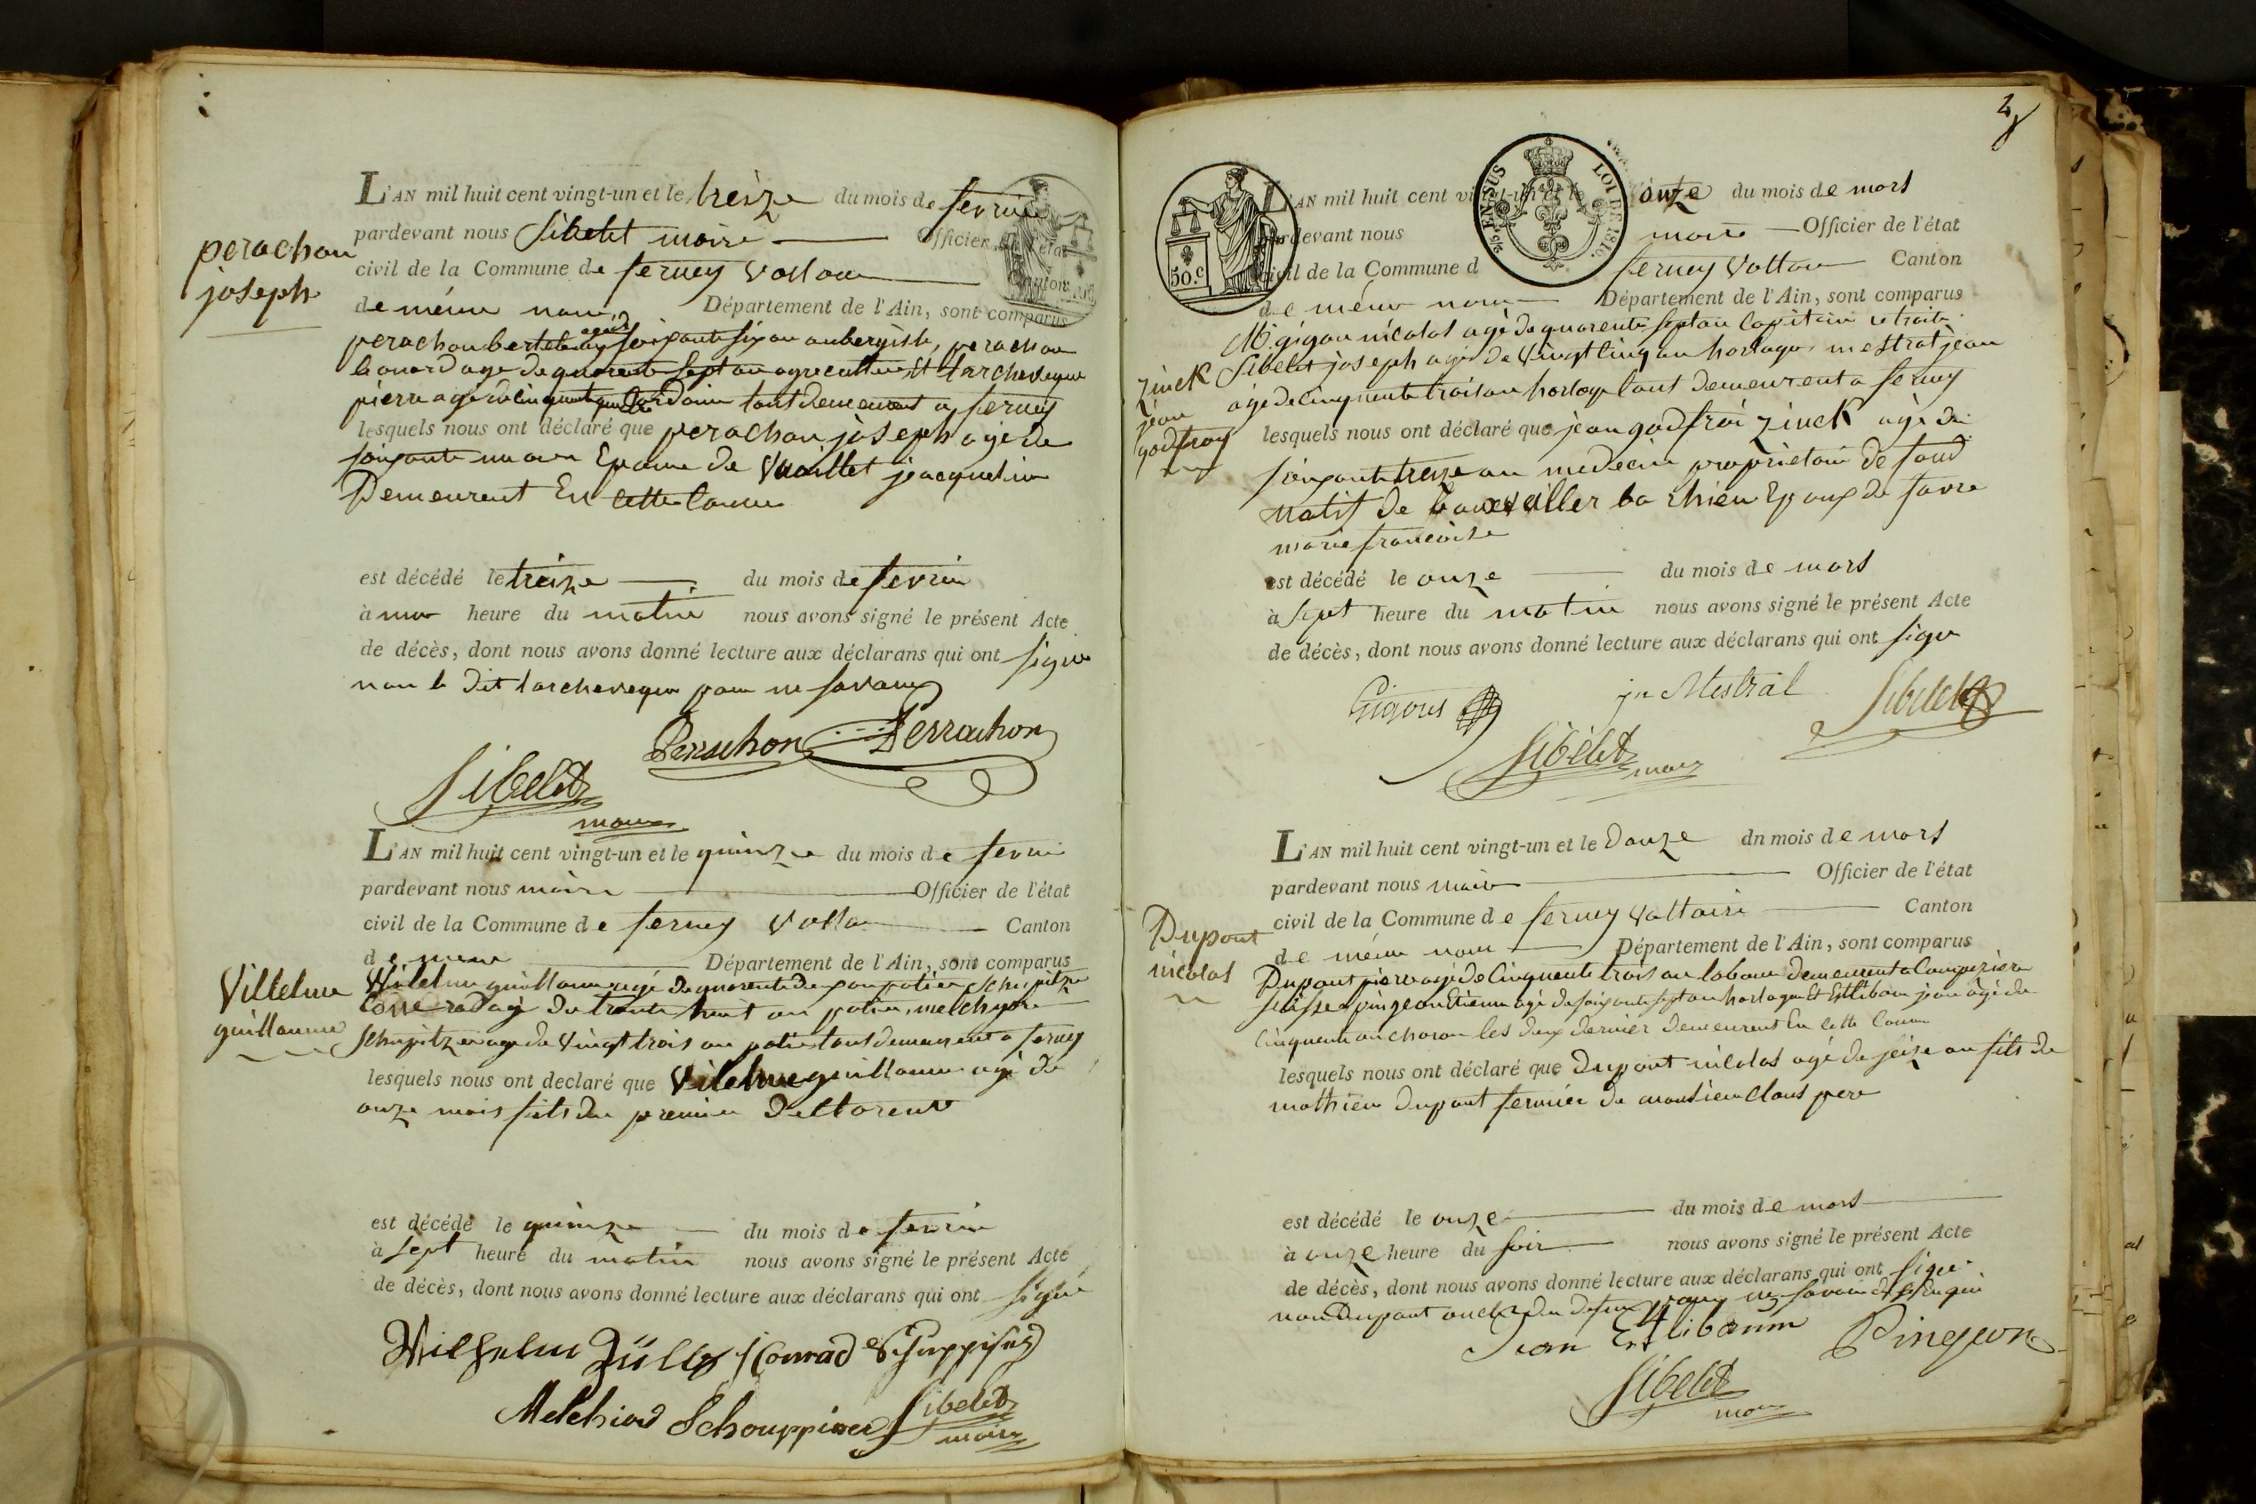 perachon
joseph
L'AN mil huit cent vingt-un et le treize du mois de fevrier
pardevant nous Sibelet maire Officier de l'état
civil de la Commune de ferney Voltaire Canton
de même nom Département de l'Ain, sont comparus
perachon agé soixante six an aubergiste, perachon
leonard age de quarente sept an agreculteur et larcheveque
pierre agé de cinquente tout demeurent a ferney
lesquels nous ont déclaré que perachon joseph agé de
soixante un an Epoux de Vuaillet jacqueline
Demeurent En cette Comune
est décédé le treize du mois de fevrier
à une heure du matin nous avons signé le présent Acte
de décès, dont nous avons donné lecture aux déclarans qui ont signé
non le dit larcheveque pour ne savoir
Perrachon Perrachon
Sibelet
maire
Villelme
guillaume
L'AN mil huit cent vingt-un et le quinze du mois de fevrier
pardevant nous maire Officier de l'état
civil de la Commune de ferney Voltaire Canton
de meme Département de l'Ain, sont comparus
guillaume agé de quarente deux an potier
Conerad agé de trente huit an potier, melchyor
agé de Vingt trois an potier tout demeurent a ferney
lesquels nous ont declaré que Vilelme guillaume agé de
onze mois fils du premier
est décédé le quinze du mois de fevrier
à sept heure du matin nous avons signé le présent Acte
de décès, dont nous avons donné lecture aux déclarans qui ont signé
Wilhelm Züllig Conrad
Melchior Schouppiser Sibelet
maire
2
50.c
LOI DE 1816.
zinck
jean
godfroy
L'AN mil huit cent vingt-un et le onze du mois de mars
pardevant nous maire Officier de l'état
civil de la Commune d ferney Voltaire Canton
de méme nom Département de l'Ain, sont comparus
M. gigou nicolas agé de quarente sept an Capitaine retraité
Sibelet joseph agé de Vingt cinq an horloger mestral jean
agé de cinquente trois an horloge tout demeurent a ferney
lesquels nous ont déclaré que jean godfroi zinck agé de
soixante treize an medecin propriètaire de fond
natif de bouxviller ba rhien Epoux de favre
marie francoise
est décédé le onze du mois de mars
à sept heure du matin nous avons signé le présent Acte
de décès, dont nous avons donné lecture aux déclarans qui ont signé
Gigous jn Mestral Sibelet
Sibelet
maire
Dupont
nicolas
L'AN mil huit cent vingt-un et le Douze dn mois de mars
pardevant nous maire Officier de l'état
civil de la Commune de ferney Voltaire Canton
de méme nom Département de l'Ain, sont comparus
Dupont pierre agé de Cinquente trois an demeurent a
suisse pingeon Etienne agé de soixante sept an horloger Et Estlibam jean agé de
Cinquente an charon les deux dernier demeurent En cette Comun
lesquels nous ont déclaré que Dupont nicolas agé de seize an fils de
mathieu Dupont fermier de monsieur
est décédé le onze du mois de mars
à onze heure du soir nous avons signé le présent Acte
de décès, dont nous avons donné lecture aux déclarans qui ont signé
non Dupont oncle du defunt pour ne savoir
Jean Estlibaum Pingeon
Sibelet
maire